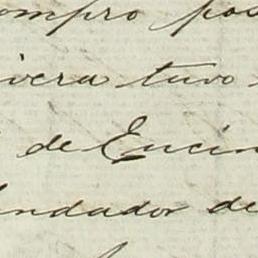 ompro pos
ivera tuvo
de Encin
endador de